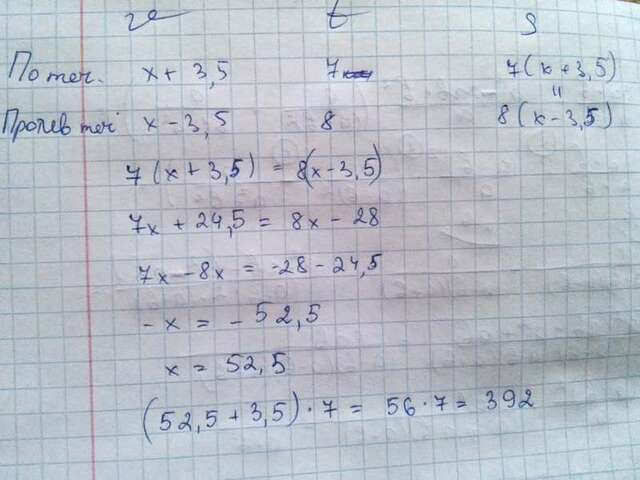 v t S
По теч. x + 3,5 7 7(x+3,5)
"
Против теч x - 3,5 8 8(x-3,5)
7(x+3,5) = 8(x-3,5)
7x + 24,5 = 8x - 28
7x - 8x = -28 - 24,5
-x = - 52,5
x = 52,5
(52,5 + 3,5) · 7 = 56 · 7 = 392